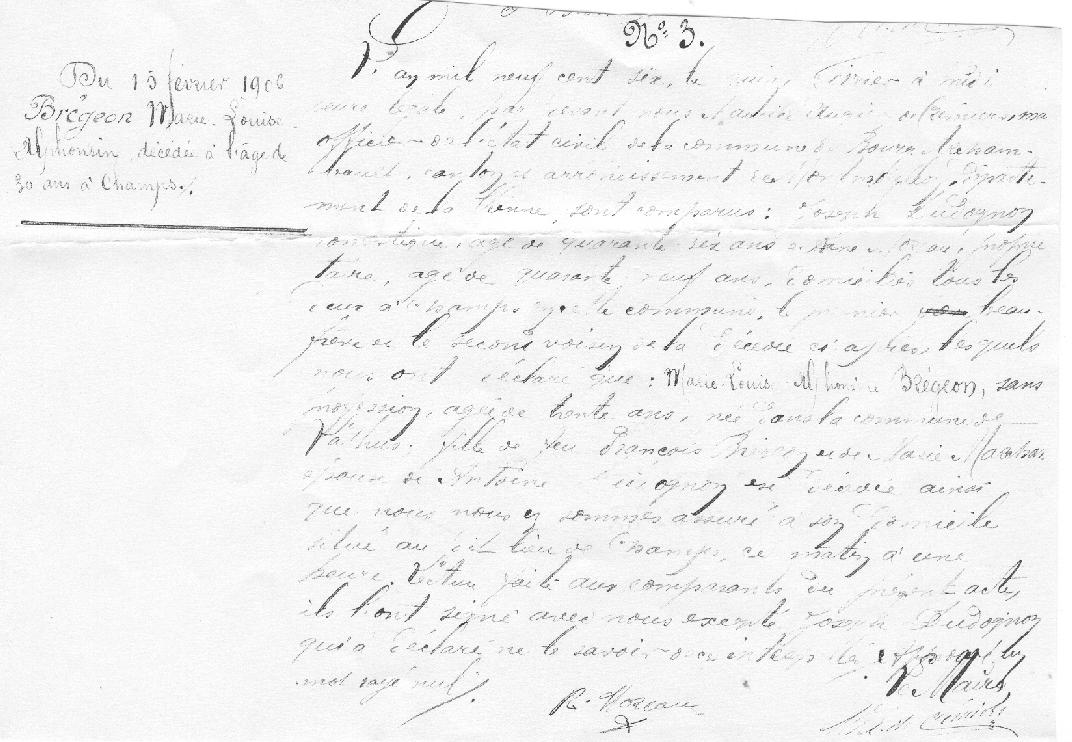 N° 3.
Du 15 février 1906
Brégeon Marie-Louise
Alphonsin, décédée à l'âge de
30 ans à Champs./.
L'an mil neuf cent six, le quinze février à midi
heure légale, par devant nous
officier de l'état civil de la commune de Bourg Archam-
bault, canton et arrondissement de Montmorillon, départe-
ment de la Vienne, sont comparus : Joseph Ludognon
domestique, âgé de quarante six ans et Moreau, proprié
taire, âgé de quarante neuf ans, domiciliés tous les
deux à Champs commune, le premier beau-
frère et le second voisin de la décédée ci après lesquels
nous ont déclaré que : Marie Louise Alphonsine Brégeon, sans
profession, âgée de trente ans, née dans la commune de
Lathus, fille de feu François et de Marie
épouse de Antoine Ludognon est décédée ainsi
que nous nous en sommes assuré à son domicile
situé au dit lieu de Champs, ce matin à une
heure. Lecture faite aux comparants du présent acte,
ils l'ont signé avec nous excepté Joseph Ludognon
qui a déclaré ne le savoir
mot rayé nul./.
Le Maire,
R. Moreau